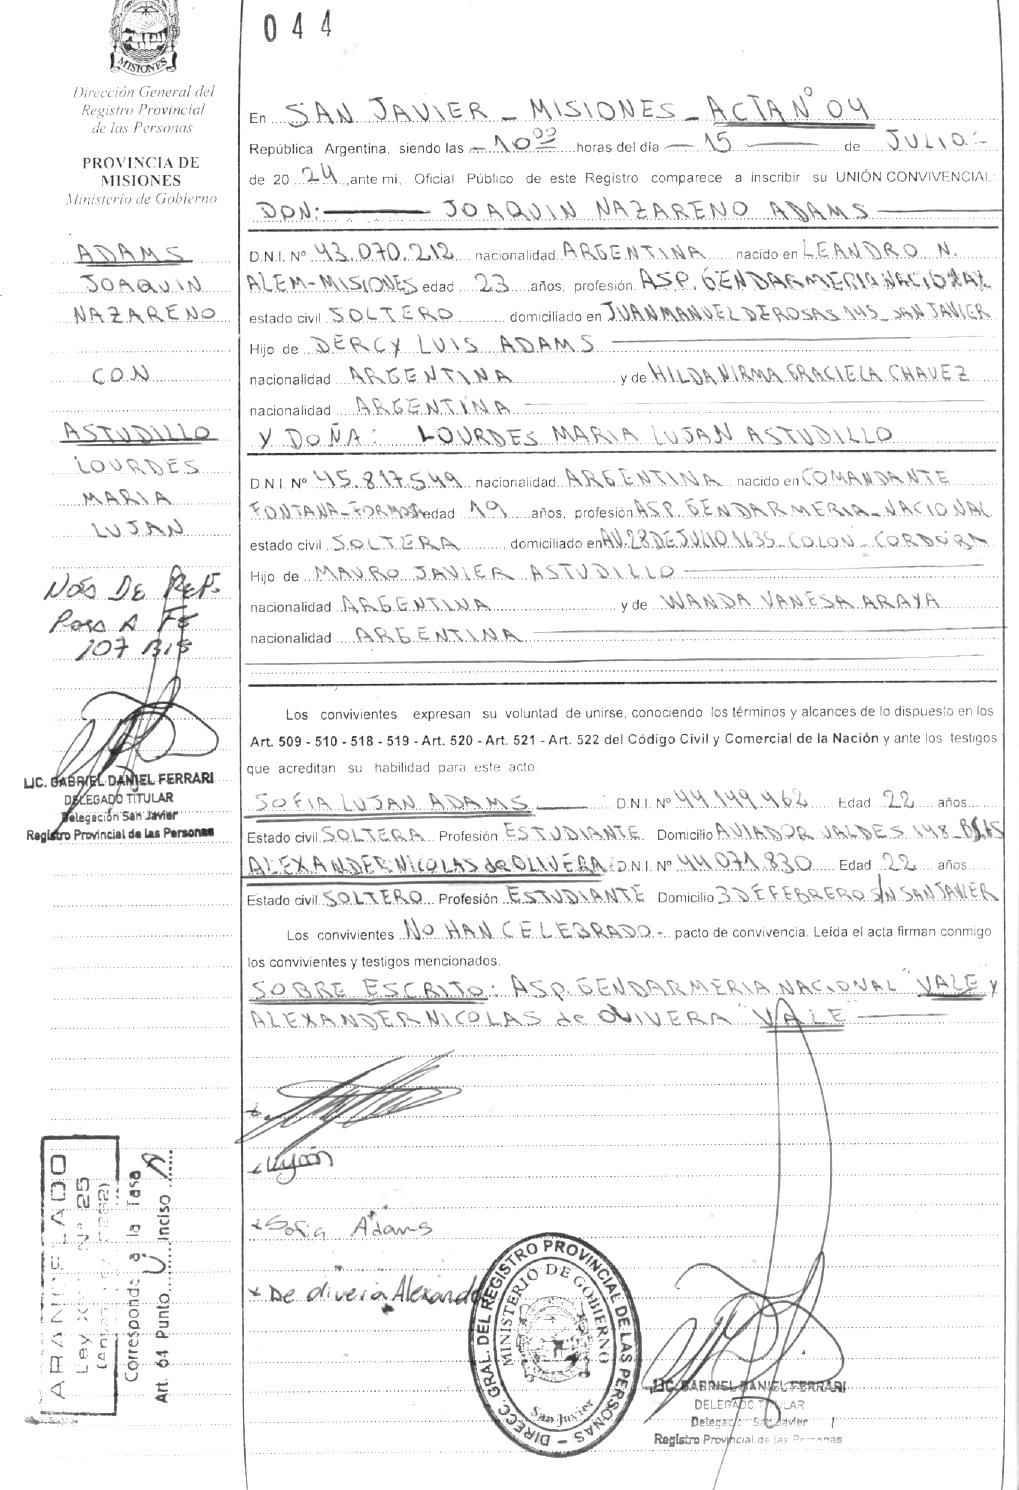 044
MISIONES
Dirección General del
Registro Provincial
de las Personas
PROVINCIA DE
MISIONES
Ministerio de Gobierno
ADAMS
JOAQUIN
NAZARENO
CON
ASTUDILLO
LOURDES
MARIA
LUJAN
PASA A FS
107 BIS
LIC. GABRIEL DANIEL FERRARI
DELEGADO TITULAR
Delegación San Javier
Registro Provincial de las Personas
ARANCELADO
Corresponde a la Tasa
Art. 64 Punto U Inciso A
En SAN JAVIER - MISIONES - ACTA N° 04
República Argentina, siendo las - 10 00 horas del día - 15 - de JULIO -
de 20 24, ante mi, Oficial Público de este Registro comparece a inscribir su UNIÓN CONVIVENCIAL:
DON: - JOAQUIN NAZARENO ADAMS -
D.N.I. N° 43.070.212 nacionalidad ARGENTINA nacido en LEANDRO N.
ALEM-MISIONES edad 23 años, profesión ASP. GENDARMERIA NACIONAL
estado civil SOLTERO domiciliado en JUAN MANUEL DE ROSAS 145 - SAN JAVIER
Hijo de DERCY LUIS ADAMS
nacionalidad ARGENTINA y de HILDA NIRMA GRACIELA CHAVEZ
nacionalidad ARGENTINA
Y DOÑA: LOURDES MARIA LUJAN ASTUDILLO
D.N.I. N° 45.817.549 nacionalidad ARGENTINA nacido en COMANDANTE
FONTANA-FORMOSA edad 19 años, profesión ASP. GENDARMERIA - NACIONAL
estado civil SOLTERA domiciliado en AV. 28 DE JULIO 1635 - COLON - CORDOBA
Hijo de MAURO JAVIER ASTUDILLO
nacionalidad ARGENTINA y de WANDA VANESA ARAYA
nacionalidad ARGENTINA
Los convivientes expresan su voluntad de unirse, conociendo los términos y alcances de lo dispuesto en los
Art. 509 - 510 - 518 - 519 - Art. 520 - Art. 521 - Art. 522 del Código Civil y Comercial de la Nación y ante los testigos
que acreditan su habilidad para este acto.
SOFIA LUJAN ADAMS D.N.I. N° 44.149.462 Edad 22 años.
Estado civil SOLTERA Profesión ESTUDIANTE Domicilio AVIADOR VALDES 148
ALEXANDER NICOLAS de OLIVERA D.N.I. N° 44.071.830 Edad 22 años.
Estado civil SOLTERO Profesión ESTUDIANTE Domicilio 3 DE FEBRERO S/N SAN JAVIER
Los convivientes NO HAN CELEBRADO - pacto de convivencia. Leída el acta firman conmigo
los convivientes y testigos mencionados.
SOBRE ESCRITO: ASP. GENDARMERIA NACIONAL "VALE" Y
ALEXANDER NICOLAS de OLIVERA "VALE"
Sofia Adams
De olivera Alexander
DIRECC. GRAL. DEL REGISTRO PROVINCIAL DE LAS PERSONAS
MINISTERIO DE GOBIERNO
San Javier
LIC. GABRIEL DANIEL FERRARI
DELEGADO TITULAR
Delegación San Javier
Registro Provincial de las Personas